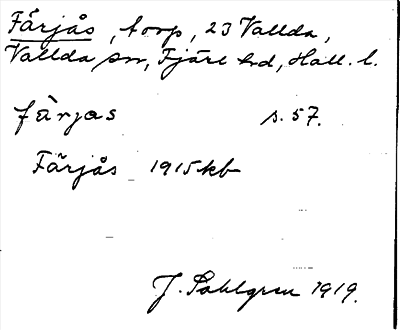 Färjås, torp, 23 Vallda,
Vallda sn, Fjäre hd, Hall. l.
fàrjas s. 57.
Färjås 1915 kb
J. Sahlgren 1919.